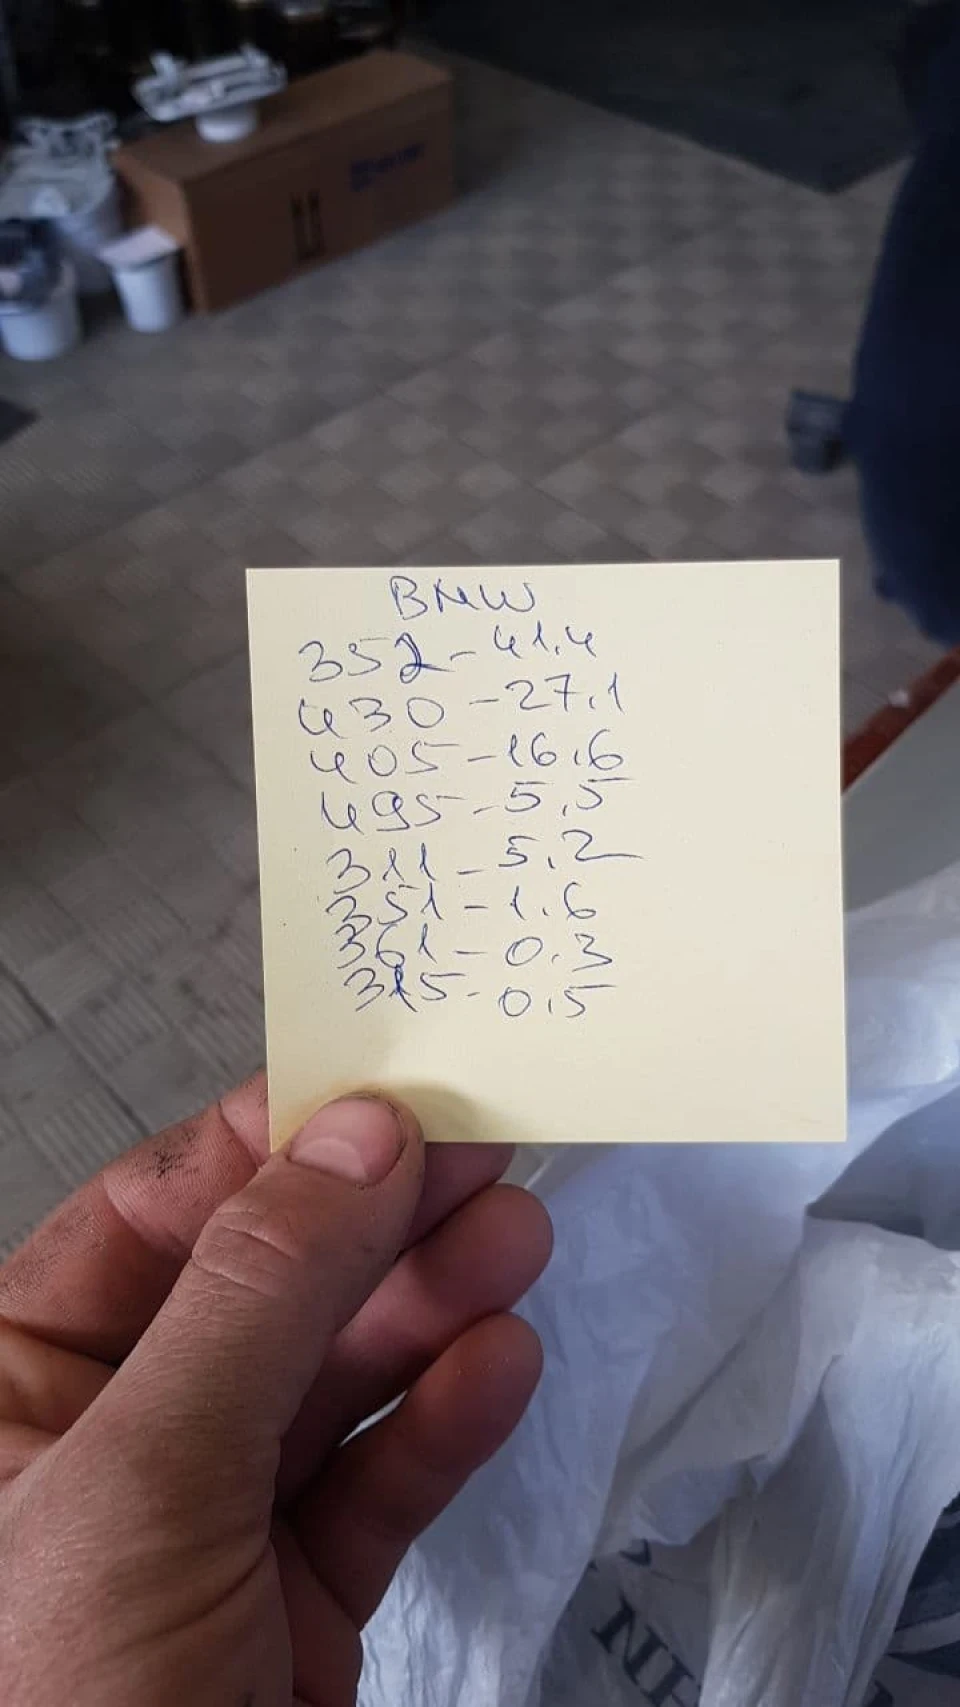 BMW
352 - 41.4
430 - 27.1
405 - 16.6
495 - 5.5
311 - 5.2
351 - 1.6
361 - 0.3
315 - 0.5